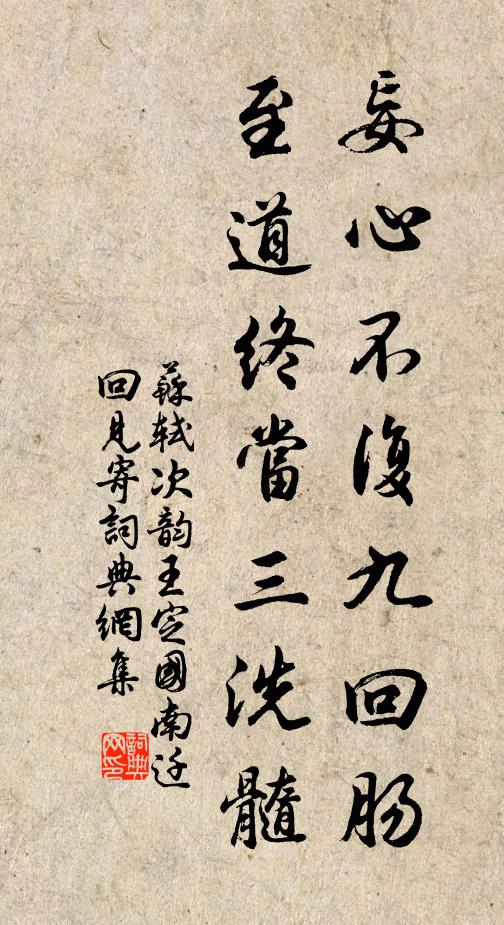 妄心不復九回肠
至道終當三洗髓
蘇軾次韵王定國南迁
回見寄詞典網集
詞典
网印